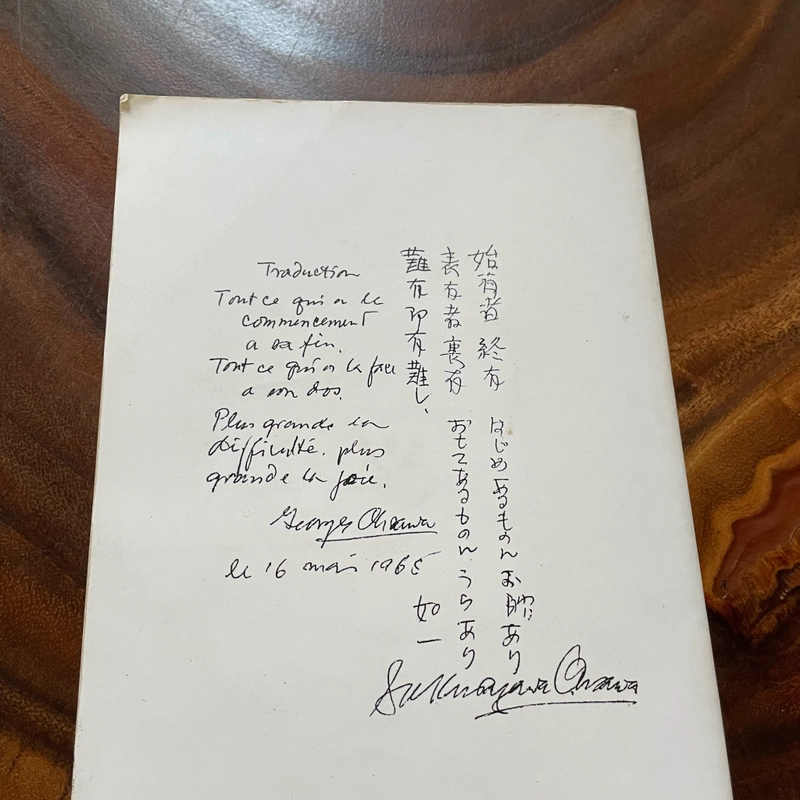 Traduction
Tout ce qui a le
commencement
a sa fin.
Tout ce qui a la face
a son dos.
Plus grande la
difficulté, plus
grande la joie.
Georges Ohsawa
le 16 mai 1965
始有者 終有 はじめあるもの あり
表有者裏有 おもてあるもの うらあり
難有即有難し、
如一
Sakurazawa Ohsawa